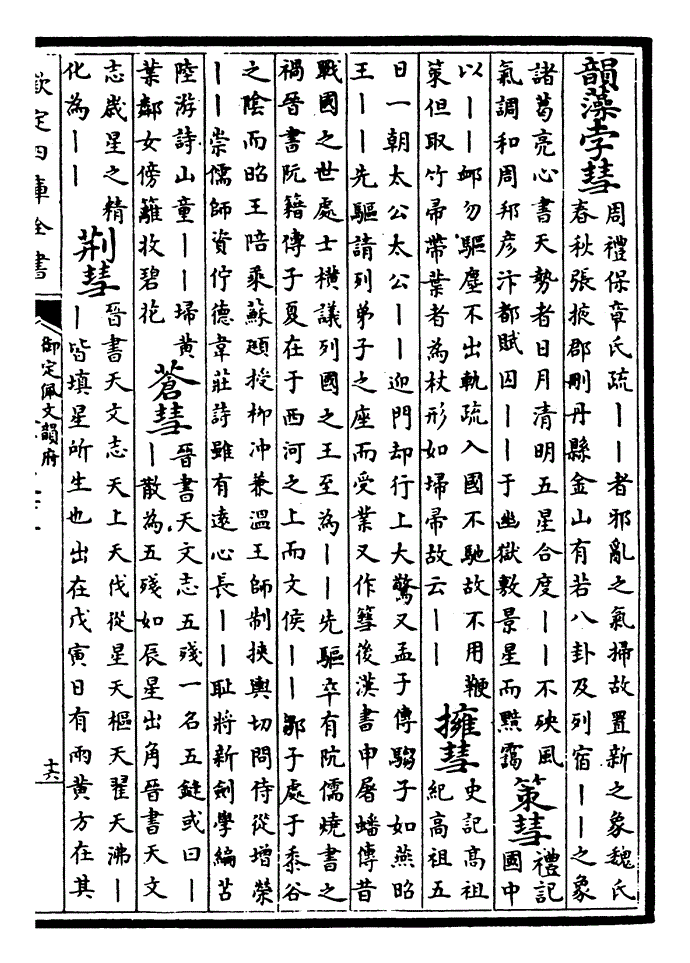 韻藻孛彗
周禮保章氏疏｜｜者邪亂之氣掃故置新之象魏氏
春秋張掖郡刪丹縣金山有若八卦及列宿｜｜之象
諸葛亮心書天勢者日月清明五星合度｜｜不殃風
氣調和周邦彥汴都賦囚｜｜于幽獄敷景星而黜靄
策彗
禮記
國中
以｜｜卹勿驅塵不出軌疏入國不馳故不用鞭
策但取竹帚帶葉者為杖形如埽帚故云｜｜
擁彗
史記高祖
紀高祖五
日一朝太公太公｜｜迎門却行上大驚又孟子傳騶子如燕昭
王｜｜先驅請列弟子之座而受業又作篲後漢書申屠蟠傳昔
戰國之世處士橫議列國之王至為｜｜先驅卒有阬儒燒書之
禍晉書阮籍傳子夏在于西河之上而文侯｜｜鄒子處于黍谷
之陰而昭王陪乘蘇頲授柳冲兼溫王師制挾輿切問侍從增榮
｜｜崇儒師資佇德韋莊詩雖有遠心長｜｜耻將新劍學編苫
陸游詩山童｜｜埽黃
葉鄰女傍籬收碧花
蒼彗
晉書天文志五殘一名五鏠或曰｜
｜散為五殘如辰星出角晉書天文
志歲星之精
化為｜｜
荊彗
晉書天文志天上天伐從星天樞天翟天沸｜
｜皆填星所生也出在戊寅日有兩黃方在其
欽定四庫全書
御定佩文韻府
十六